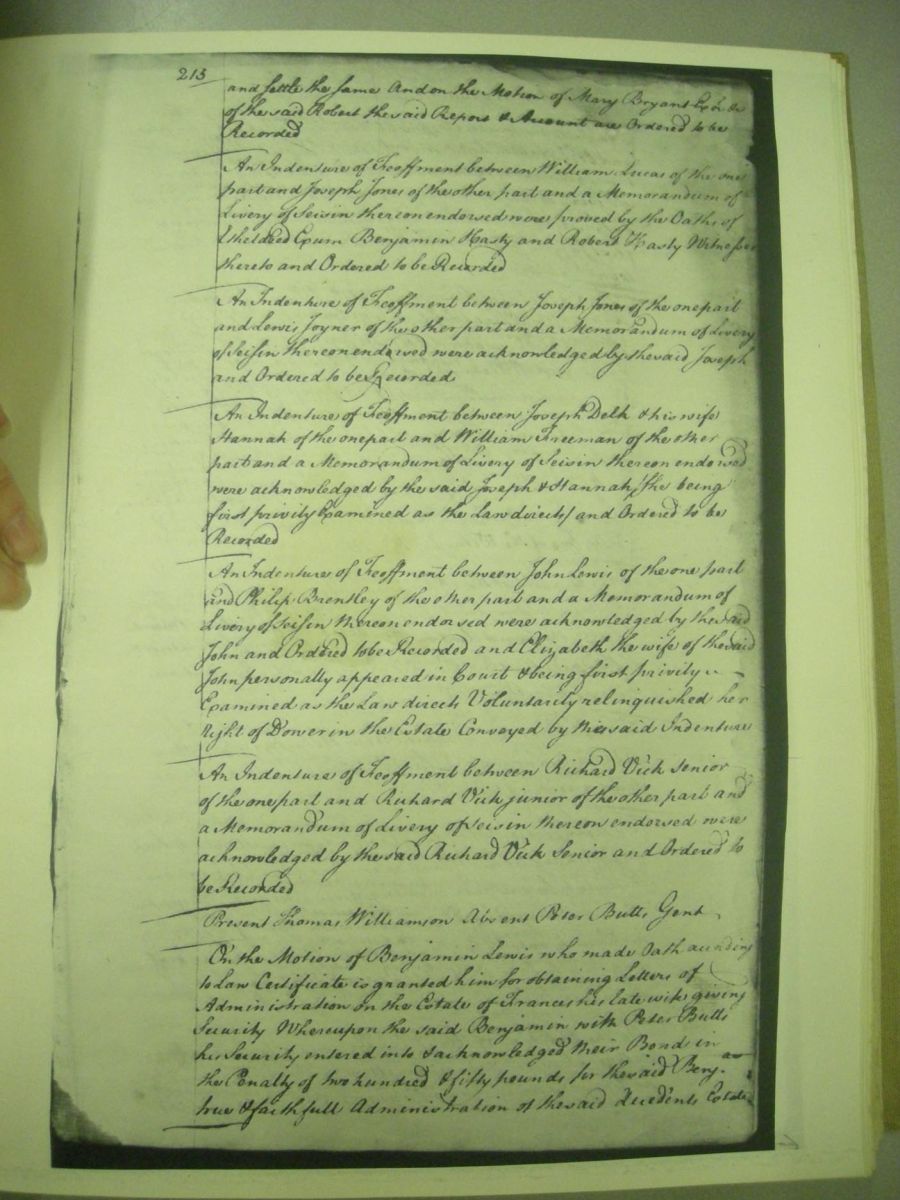 213
and settle the same And on the Motion of Mary Bryant
of the said Robert the said Report & Account are Ordered to be
Recorded
An Indenture of Feoffment between William Lucas of the one
part and Joseph Jones of the other part and a Memorandum of
Livery of Seisin thereon endorsed were proved by the Oaths of
Etheldred Exum Benjamin Hasty and Robert Hasty Witnesses
thereto and Ordered to be Recorded
An Indenture of Feoffment between Joseph Jones of the one part
and Lewis Joyner of the other part and a Memorandum of Livery
of Seisin thereon endorsed were acknowledged by the said Joseph
and Ordered to be Recorded
An Indenture of Feoffment between Joseph Delk & his wife
Hannah of the one part and William Freeman of the other
part and a Memorandum of Livery of Seisin thereon endorsed
were acknowledged by the said Joseph & Hannah /she being
first privily Examined as the Law directs/ and Ordered to be
Recorded
An Indenture of Feoffment between John Lewis of the one part
and Philip Brentley of the other part and a Memorandum of
Livery of Seisin thereon endorsed were acknowledged by the said
John and Ordered to be Recorded and Elizabeth the wife of the said
John personally appeared in Court & being first privily
Examined as the Law directs Voluntarily relinquished her
right of Dower in the Estate Conveyed by the said Indenture
An Indenture of Feoffment between Richard Vick Senior
of the one part and Richard Vick junior of the other part and
a Memorandum of Livery of Seisin thereon endorsed were
acknowledged by the said Richard Vick Senior and Ordered to
be Recorded
Present Thomas Williamson Absent Peter Butts Gent
On the Motion of Benjamin Lewis who made Oath according
to Law Certificate is granted him for obtaining Letters of
Administration on the Estate of Frances his late wife giving
Security Whereupon the said Benjamin with Peter Butts
his Security entered into & acknowledged their Bond in
the Penalty of two hundred & fifty pounds for the said Benj.
true & faithfull Administration of the said Decedents Estate